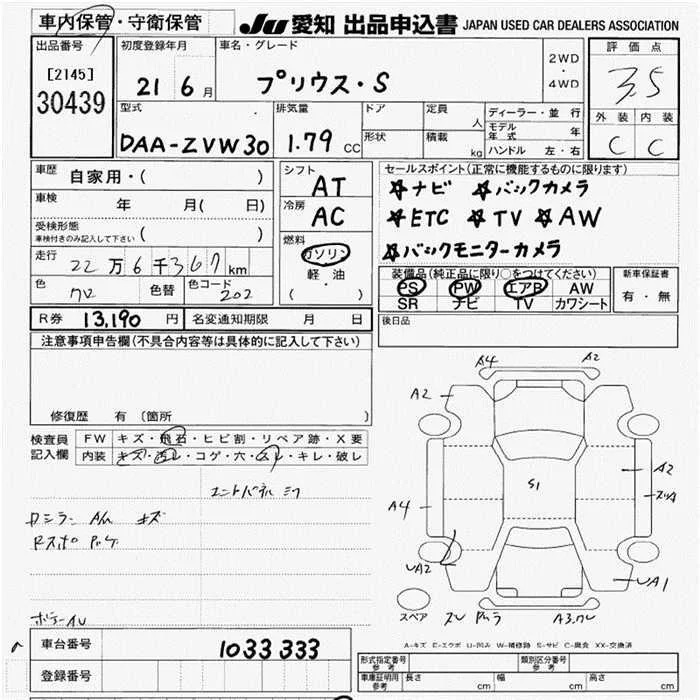 車内保管・守衛保管
JU 愛知 出品申込書 JAPAN USED CAR DEALERS ASSOCIATION
出品番号
[2145]
30439
初度登録年月
21 6月
車名・グレード
プリウス・S
2WD
・
4WD
評価点
3.5
外装 内装
C C
型式
DAA-ZVW30
排気量
1.79 CC
ドア
形状
定員 人
積載 kg
ディーラー・並行
モデル年式 年
ハンドル 左・右
車歴 自家用・( )
車検 年 月( 日)
受検形態
車検付きのみ記入して下さい ( )
走行 22万6千367km
色 色替 色コード 202
シフト
AT
冷房
AC
燃料
ガソリン
軽油
( ・ )
セールスポイント(正常に機能するものに限ります)
☆ナビ ☆バックカメラ
☆ETC ☆TV ☆AW
☆バックモニターカメラ
装備品(純正品に限り○をつけてください)
PS PW エアB AW
SR ナビ TV カワシート
新車保証書
有・無
R券 13,190円 名変通知期限 月 日
後日品
注意事項申告欄(不具合内容等は具体的に記入して下さい)
修復歴 有(箇所 )
検査員
記入欄
FW キズ・飛石・ヒビ割・リペア跡・X要
内装 キズ・汚レ・コゲ・穴・スレ・キレ・破レ
A4 A2
A2
S1
A2
A4
UA2
UA1
スペア
A-キズ E-エクボ U-凹み W-補修跡 S-サビ C-腐食 XX-交換済
車台番号 1033333
登録番号
形式指定番号 参考
類別区分番号 参考
車庫証明用 参考
長さ cm 幅 cm 高さ cm